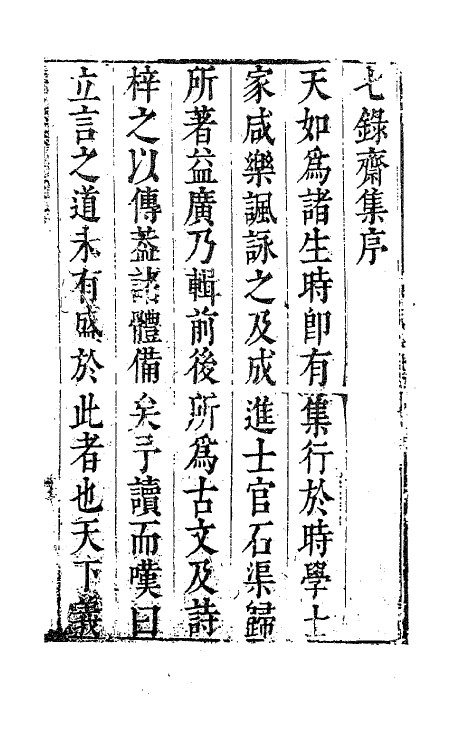 七錄齋集序
天如爲諸生時卽有集行於時學士
家咸樂諷詠之及成進士官石渠歸
所著益廣乃輯前後所爲古文及詩
梓之以傳葢諸體備矣予讀而嘆曰
立言之道未有盛於此者也天下義